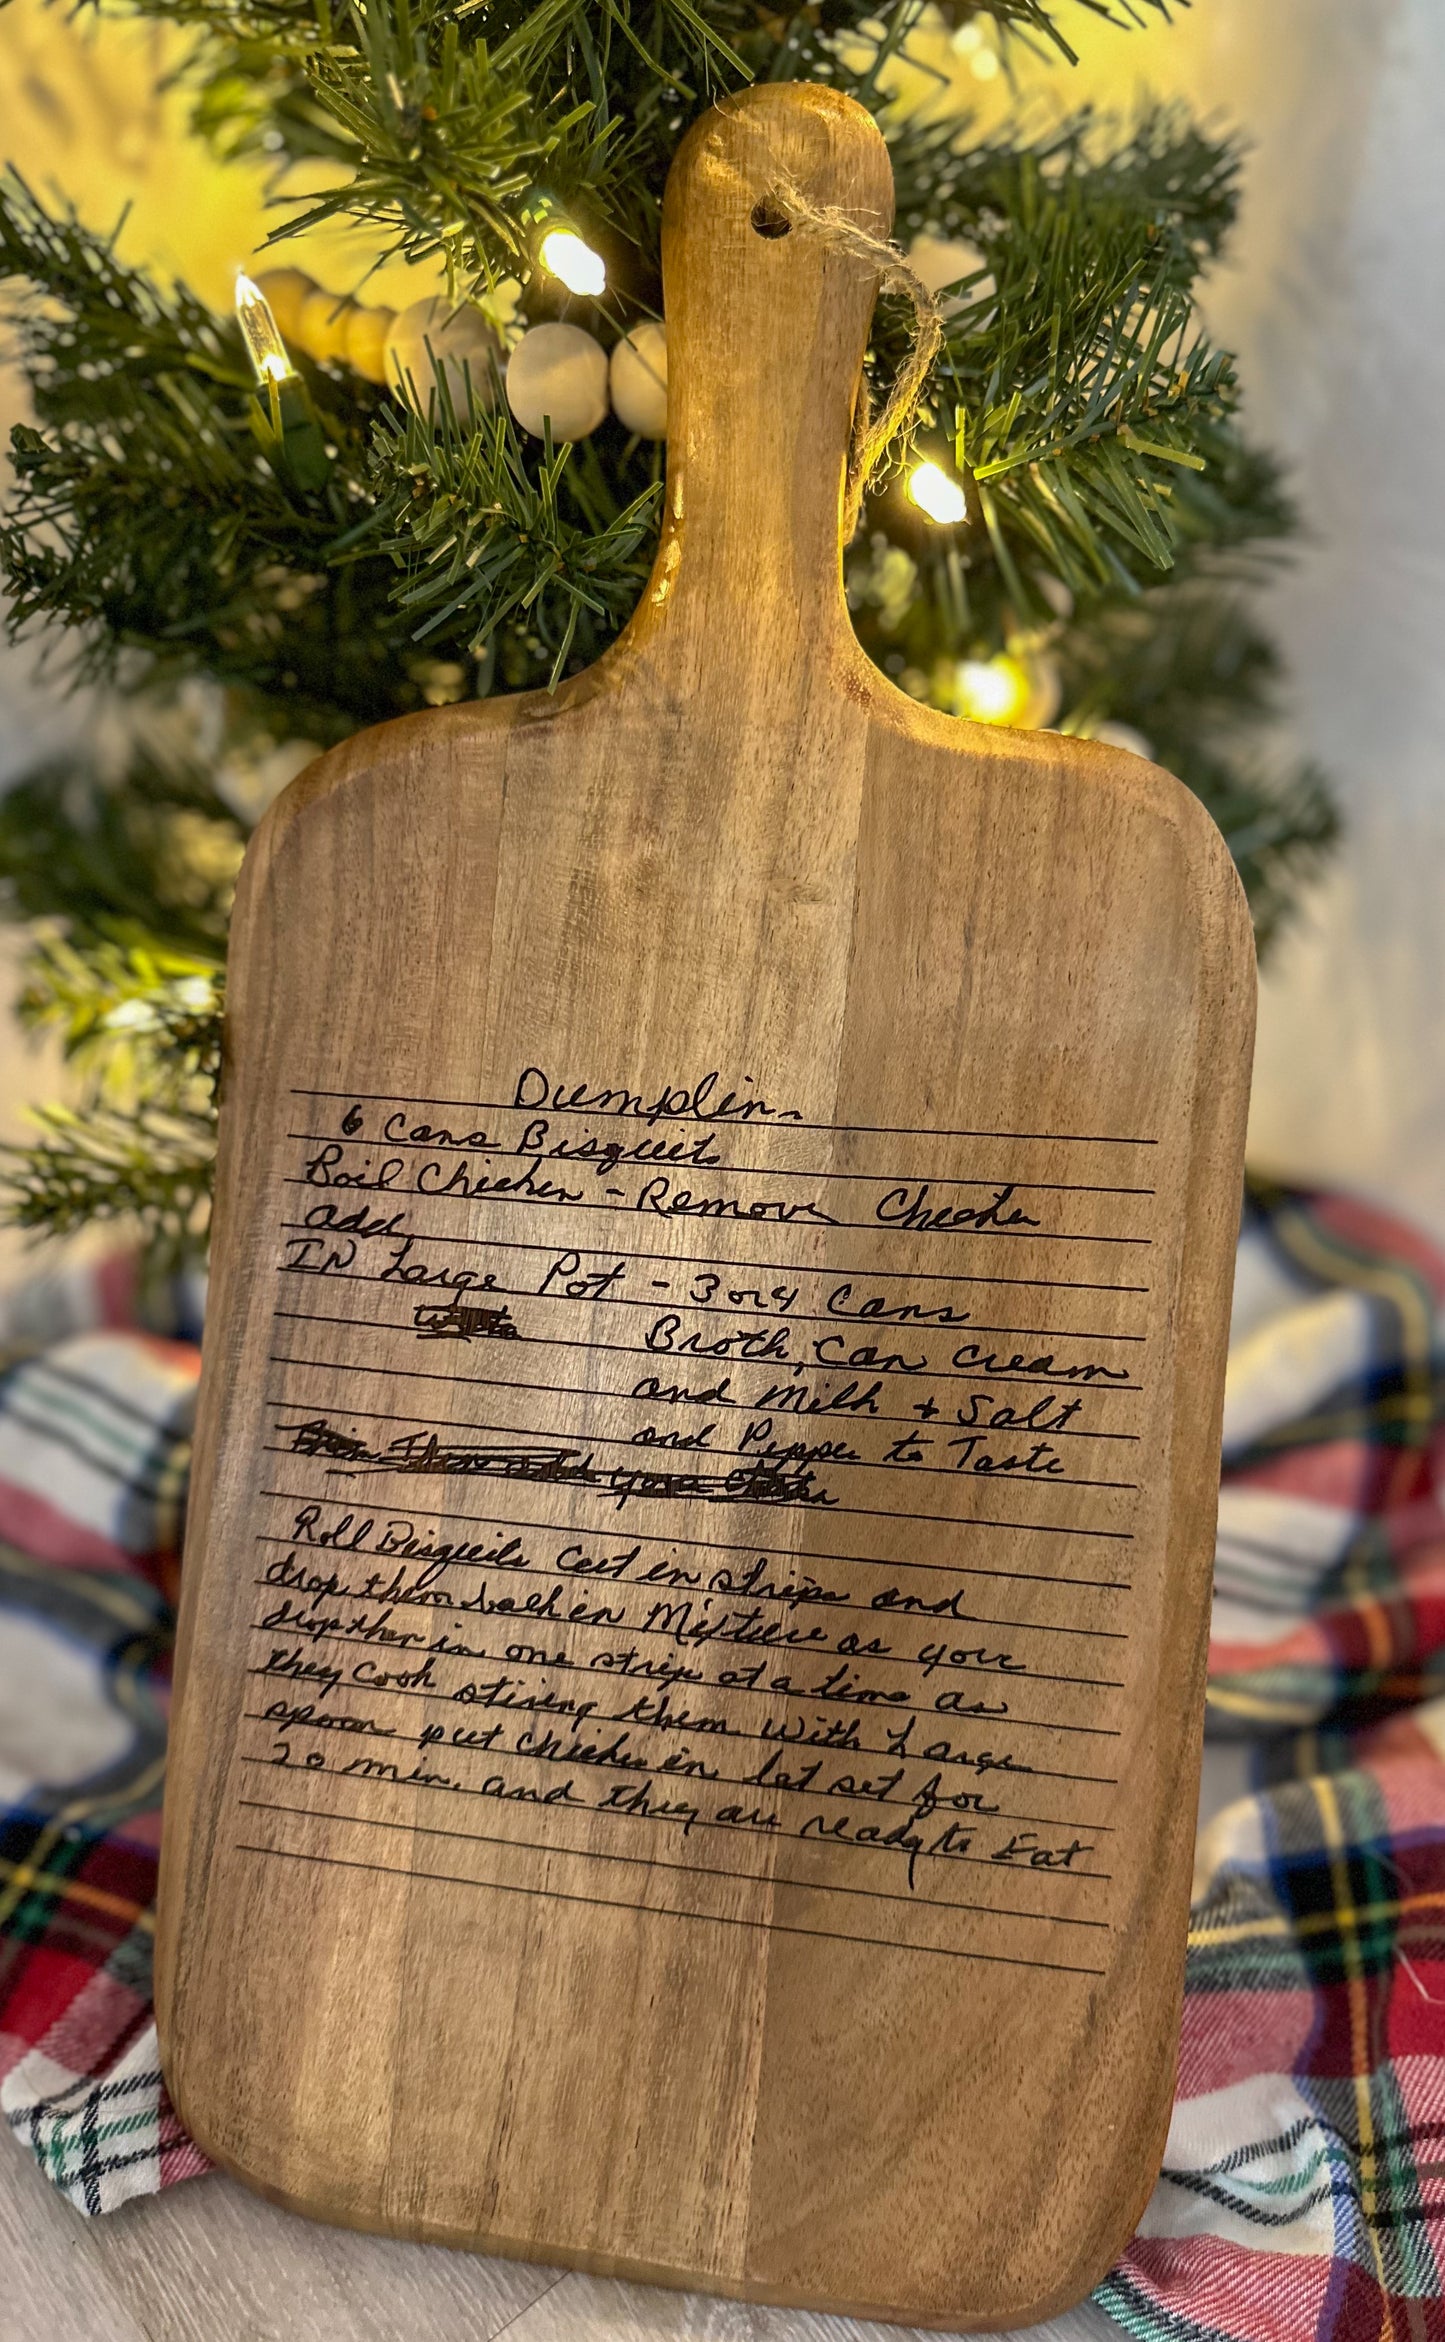 Dumplins
6 Cans Bisquits
Boil Chicken - Remove Chicken
add
IN Large Pot - 3 or 4 Cans
Broth, Can Cream
and Milk + Salt
and Pepper to Taste
Roll Bisquits Cut in strips and
drop them back in Mixture as you
drop them in one strip at a time as
they Cook stiring them With Large
spoon put chicken in let set for
20 min. and they are ready to Eat